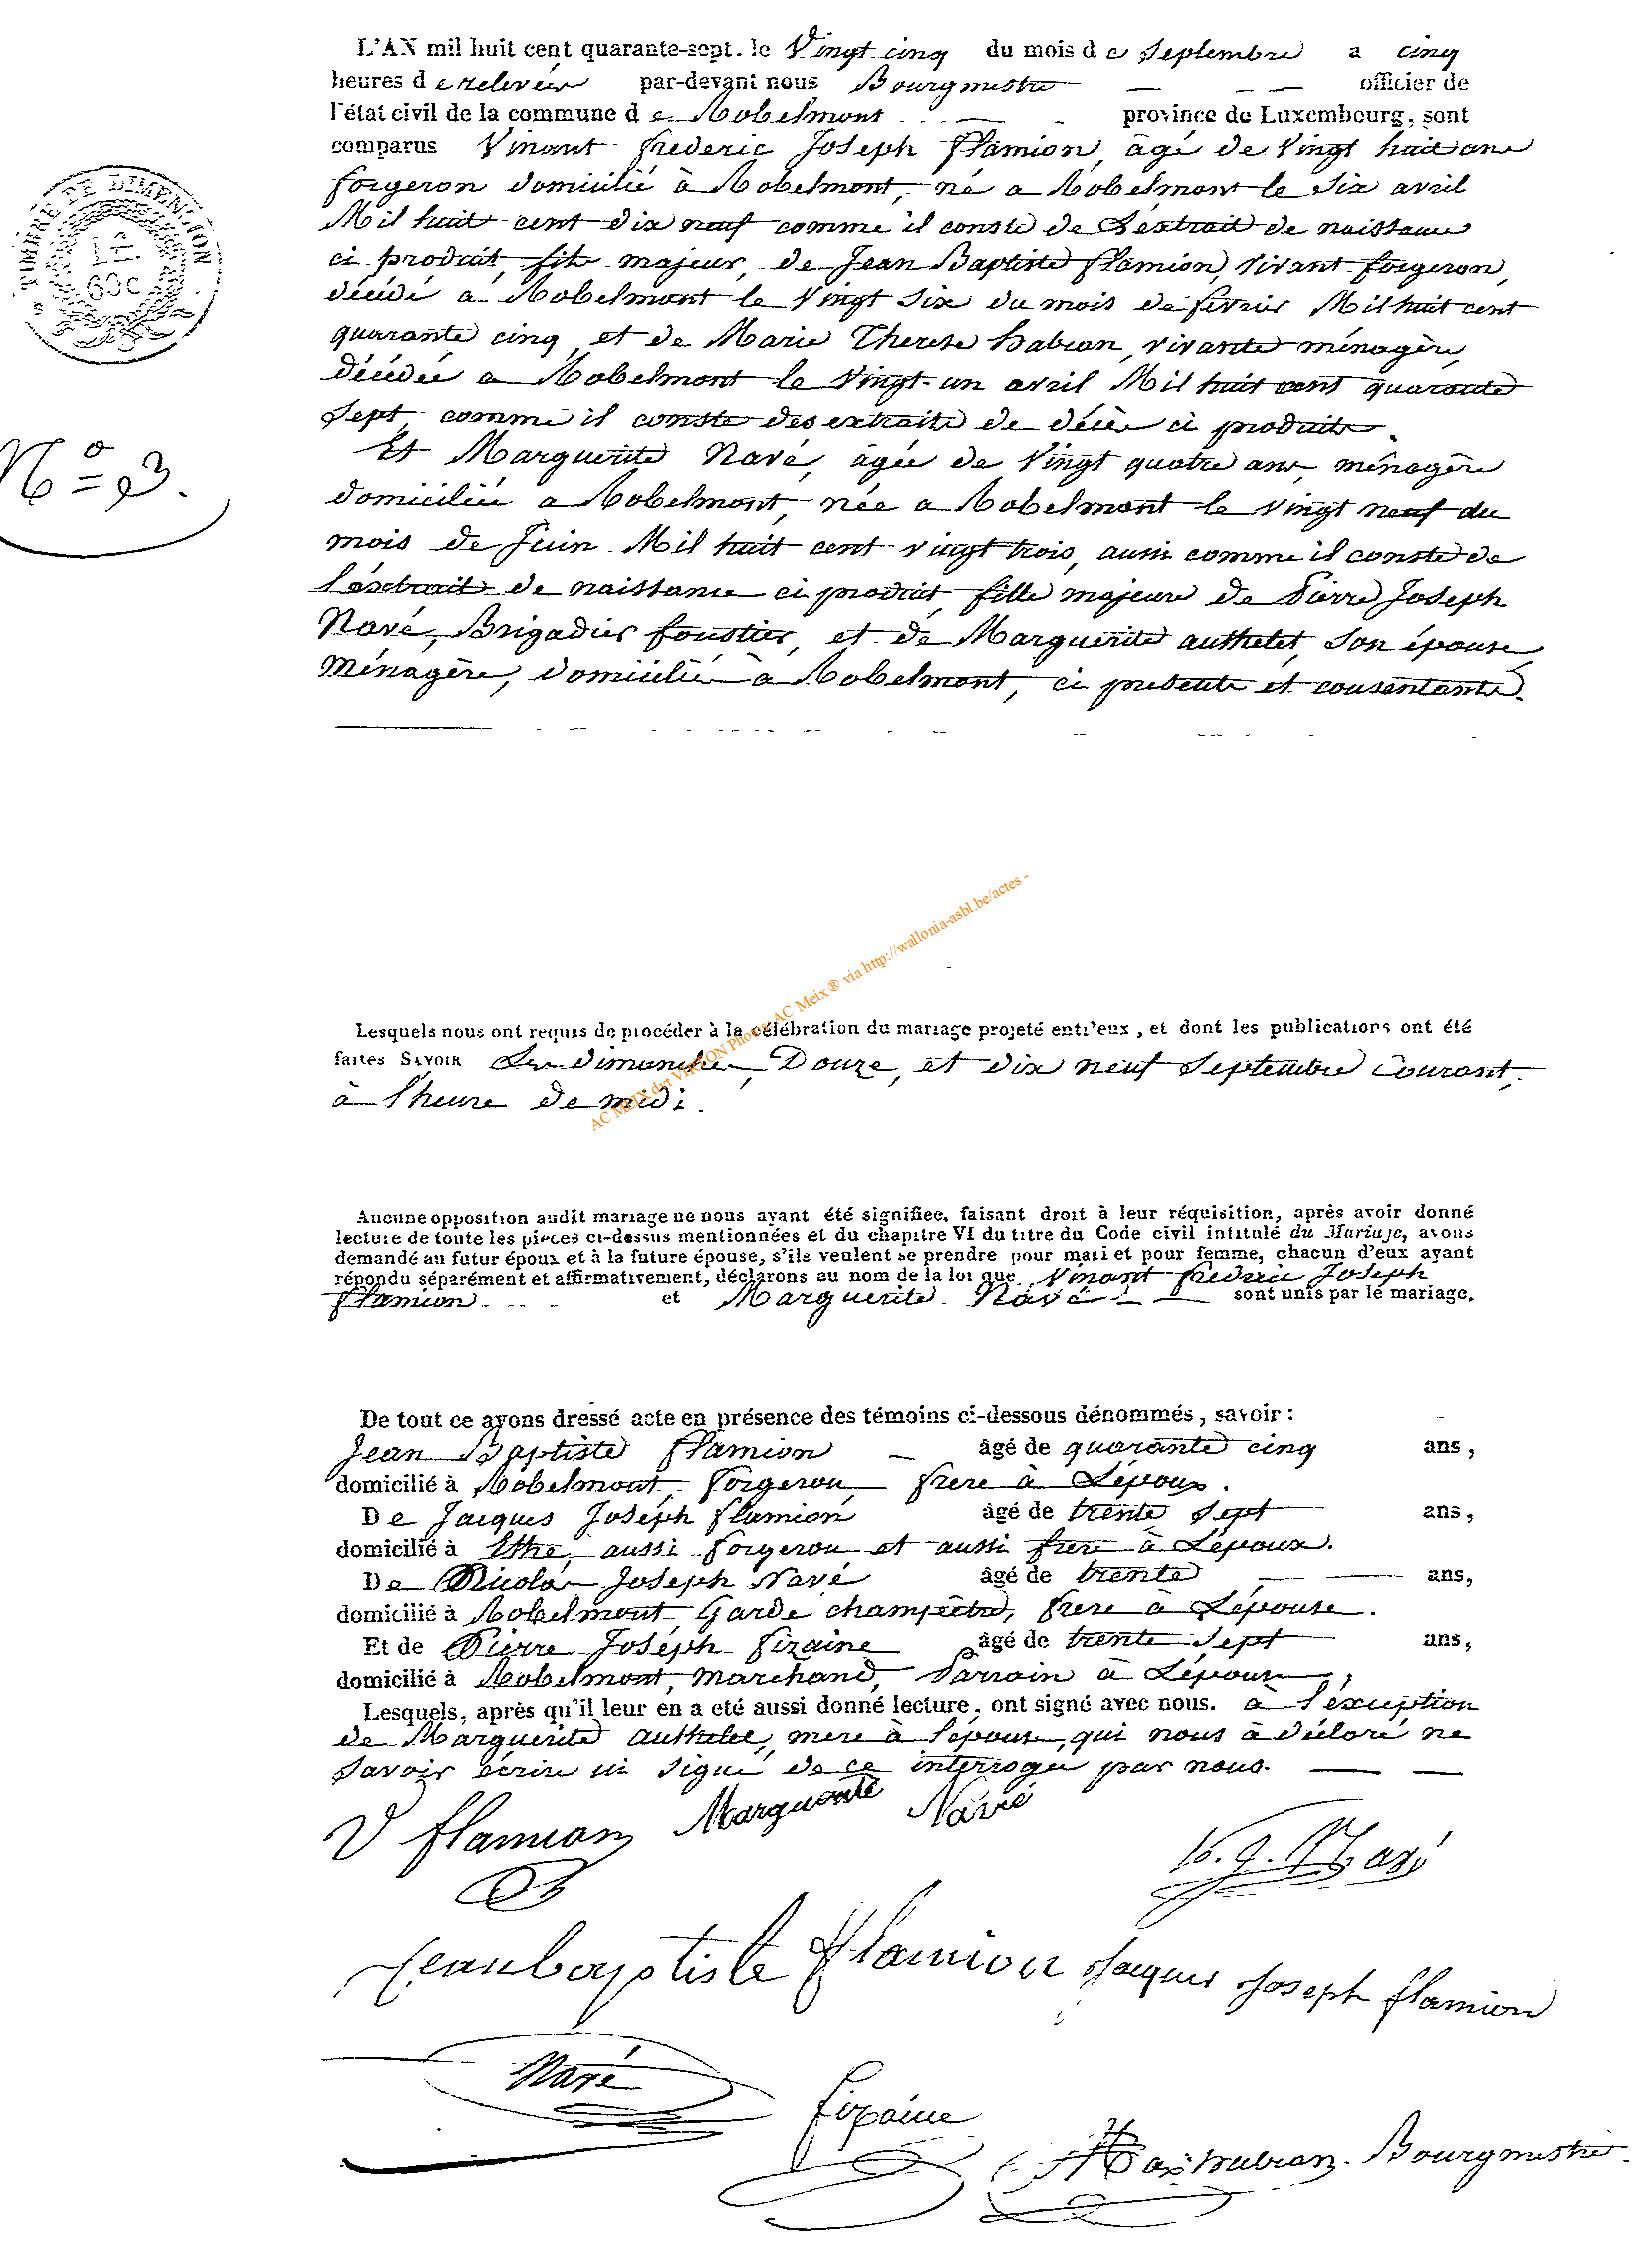 L'AN mil huit cent quarante-sept. le Vingt cinq du mois d e Septembre a cinq
heures d e relevée par-devant nous Bourgmestre officier de
l'état civil de la commune d e Robelmont province de Luxembourg, sont
comparus Vinant frederic Joseph Flamion, âgé de Vingt huit ans
forgeron domicilié à Robelmont, né a Robelmont le Six avril
Mil huit cent dix neuf comme il conste de L'extrait de naissance
ci produit, fils majeur, de Jean Baptiste flamion, Vivant forgeron,
décédé a Robelmont le Vingt Six du mois de fevrier Mil huit cent
quarante cinq, et de Marie Therese habran, vivante ménagère,
décédée a Robelmont le Vingt-un avril Mil huit cent quarante
Sept, comme il conste des extraits de décès ci produits.
Et Marguerite Navé, âgée de Vingt quatre ans, ménagère
domiciliée a Robelmont, née a Robelmont le Vingt neuf du
mois de Juin Mil huit cent vingt trois, aussi comme il conste de
l'extrait de naissance ci produit, fille majeure de Pierre Joseph
Navé, Brigadier foustier, et de Marguerite authelet, Son épouse
Ménagère, domiciliés a Robelmont, ci presents et consentants.
TIMBRE DE DIMENSION
60C
N° 3.
Lesquels nous ont requis de procéder à la célébration du mariage projeté entr'eux, et dont les publications ont été
faites SAVOIR Les dimanches, Douze, et dix neuf Septembre Courant,
à l'heure de midi.
AC Meix dvt VIRTON Photos AC Meix ® via http://wallonia-asbl.be/actes -
Aucune opposition audit mariage ne nous ayant été signifiee, faisant droit à leur réquisition, après avoir donné
lecture de toute les pieces ci-dessus mentionnées et du chapitre VI du titre du Code civil intitulé du Mariage, avons
demandé au futur époux et à la future épouse, s'ils veulent se prendre pour mari et pour femme, chacun d'eux ayant
répondu séparément et affirmativement, déclarons au nom de la loi que Vinant frederic Joseph
flamion et Marguerite Navé sont unis par le mariage.
De tout ce avons dressé acte en présence des témoins ci-dessous dénommés, savoir:
Jean Baptiste flamion âgé de quarante cinq ans,
domicilié à Robelmont, forgeron, frere à L'époux.
De Jacques Joseph flamion âgé de trente Sept ans,
domicilié à Ethe, aussi forgeron et aussi frere à L'époux.
De Nicolas Joseph Navé âgé de trente ans,
domicilié à Robelmont Garde champêtre, frere à L'épouse.
Et de Pierre Joseph Fizaine âgé de trente Sept ans,
domicilié à Robelmont, marchand, Parrain à L'épouse,
Lesquels, après qu'il leur en a été aussi donné lecture, ont signé avec nous. à l'exception
de Marguerite authelet, mere à l'épouse, qui nous à déclaré ne
Savoir écrire ni Signé de ce interrogée par nous.
V flamion Marguerite Navé
Navé
Jean baptiste flamion Jacques Joseph flamion
Navé
fizaine
Bourgmestre